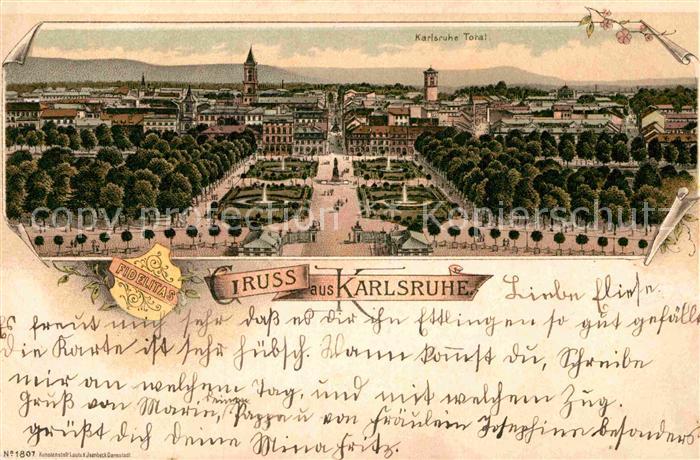 Karlsruhe Total
copyright kopierschutz
FIDELITAS
GRUSS aus KARLSRUHE.
Liebe Eliese.
Es freut mich sehr daß es dir in Ettlingen so gut gefällt
die Karte ist sehr hübsch. Wann kommst du, Schreibe
mir an welchem Tag, und mit welchem Zug.
Gruß von Marie, deinem Pappa u von Fräulein Josephine besonders
grüßt dich deine Mina Fritz.
No 1807 Kunstanstalt Lautz & Jsenbeck Darmstadt